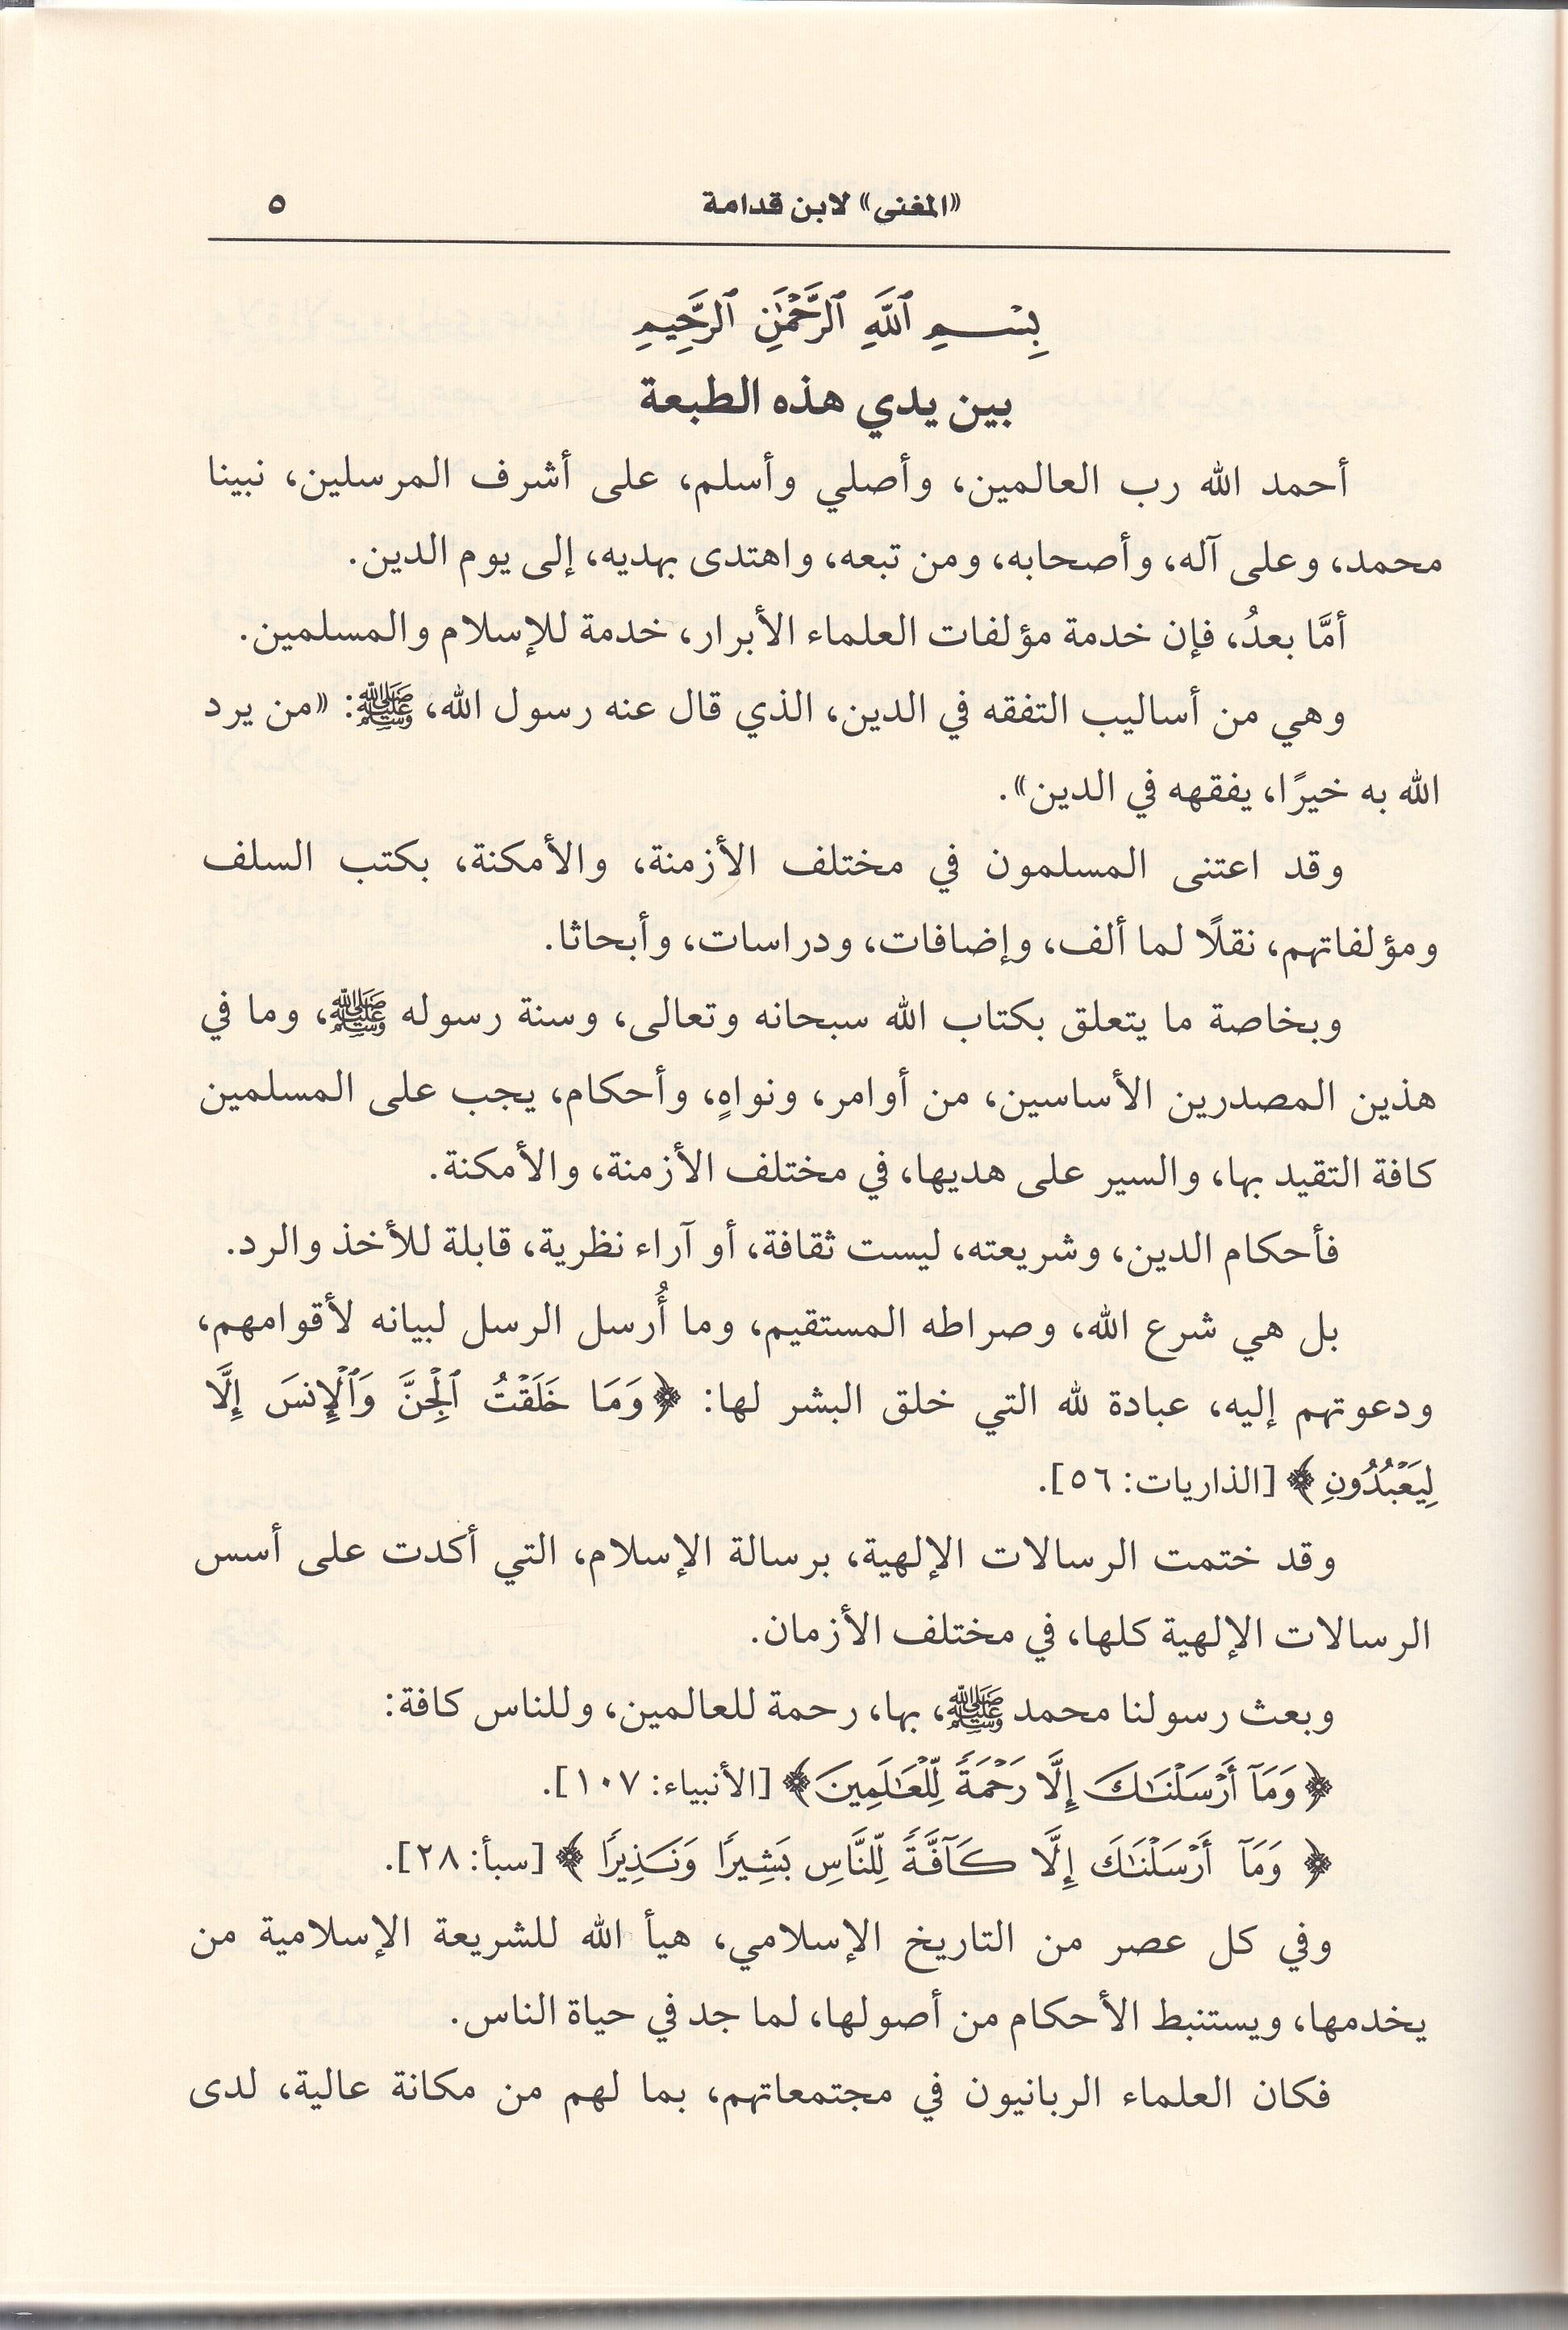 «المغنى» لابن قدامة ٥
بِسْمِ ٱللَّهِ ٱلرَّحْمَٰنِ ٱلرَّحِيمِ
بين يدي هذه الطبعة
أحمد الله رب العالمين، وأصلي وأسلم، على أشرف المرسلين، نبينا
محمد، وعلى آله، وأصحابه، ومن تبعه، واهتدى بهديه، إلى يوم الدين.
أمَّا بعدُ، فإن خدمة مؤلفات العلماء الأبرار، خدمة للإسلام والمسلمين.
وهي من أساليب التفقه في الدين، الذي قال عنه رسول الله، ﷺ: «من يرد
الله به خيرًا، يفقهه في الدين».
وقد اعتنى المسلمون في مختلف الأزمنة، والأمكنة، بكتب السلف
ومؤلفاتهم، نقلًا لما ألف، وإضافات، ودراسات، وأبحاثا.
وبخاصة ما يتعلق بكتاب الله سبحانه وتعالى، وسنة رسوله ﷺ، وما في
هذين المصدرين الأساسين، من أوامر، ونواهٍ، وأحكام، يجب على المسلمين
كافة التقيد بها، والسير على هديها، في مختلف الأزمنة، والأمكنة.
فأحكام الدين، وشريعته، ليست ثقافة، أو آراء نظرية، قابلة للأخذ والرد.
بل هي شرع الله، وصراطه المستقيم، وما أُرسل الرسل لبيانه لأقوامهم،
ودعوتهم إليه، عبادة لله التي خلق البشر لها: ﴿وَمَا خَلَقْتُ ٱلْجِنَّ وَٱلْإِنسَ إِلَّا
لِيَعْبُدُونِ﴾ [الذاريات: ٥٦].
وقد ختمت الرسالات الإلهية، برسالة الإسلام، التي أكدت على أسس
الرسالات الإلهية كلها، في مختلف الأزمان.
وبعث رسولنا محمد ﷺ، بها، رحمة للعالمين، وللناس كافة:
﴿وَمَآ أَرْسَلْنَٰكَ إِلَّا رَحْمَةً لِّلْعَٰلَمِينَ﴾ [الأنبياء: ١٠٧].
﴿وَمَآ أَرْسَلْنَٰكَ إِلَّا كَآفَّةً لِّلنَّاسِ بَشِيرًا وَنَذِيرًا﴾ [سبأ: ٢٨].
وفي كل عصر من التاريخ الإسلامي، هيأ الله للشريعة الإسلامية من
يخدمها، ويستنبط الأحكام من أصولها، لما جد في حياة الناس.
فكان العلماء الربانيون في مجتمعاتهم، بما لهم من مكانة عالية، لدى